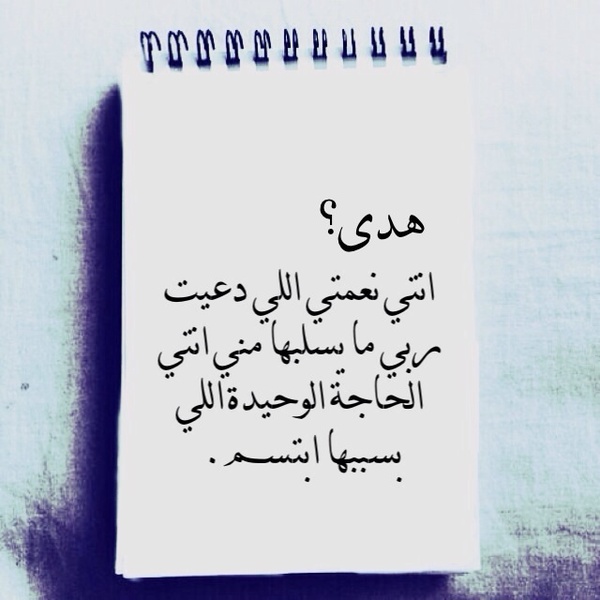 هدى؟
انتي نعمتي اللي دعيت
ربي ما يسلبها مني انتي
الحاجة الوحيدة اللي
بسببها ابتسم .